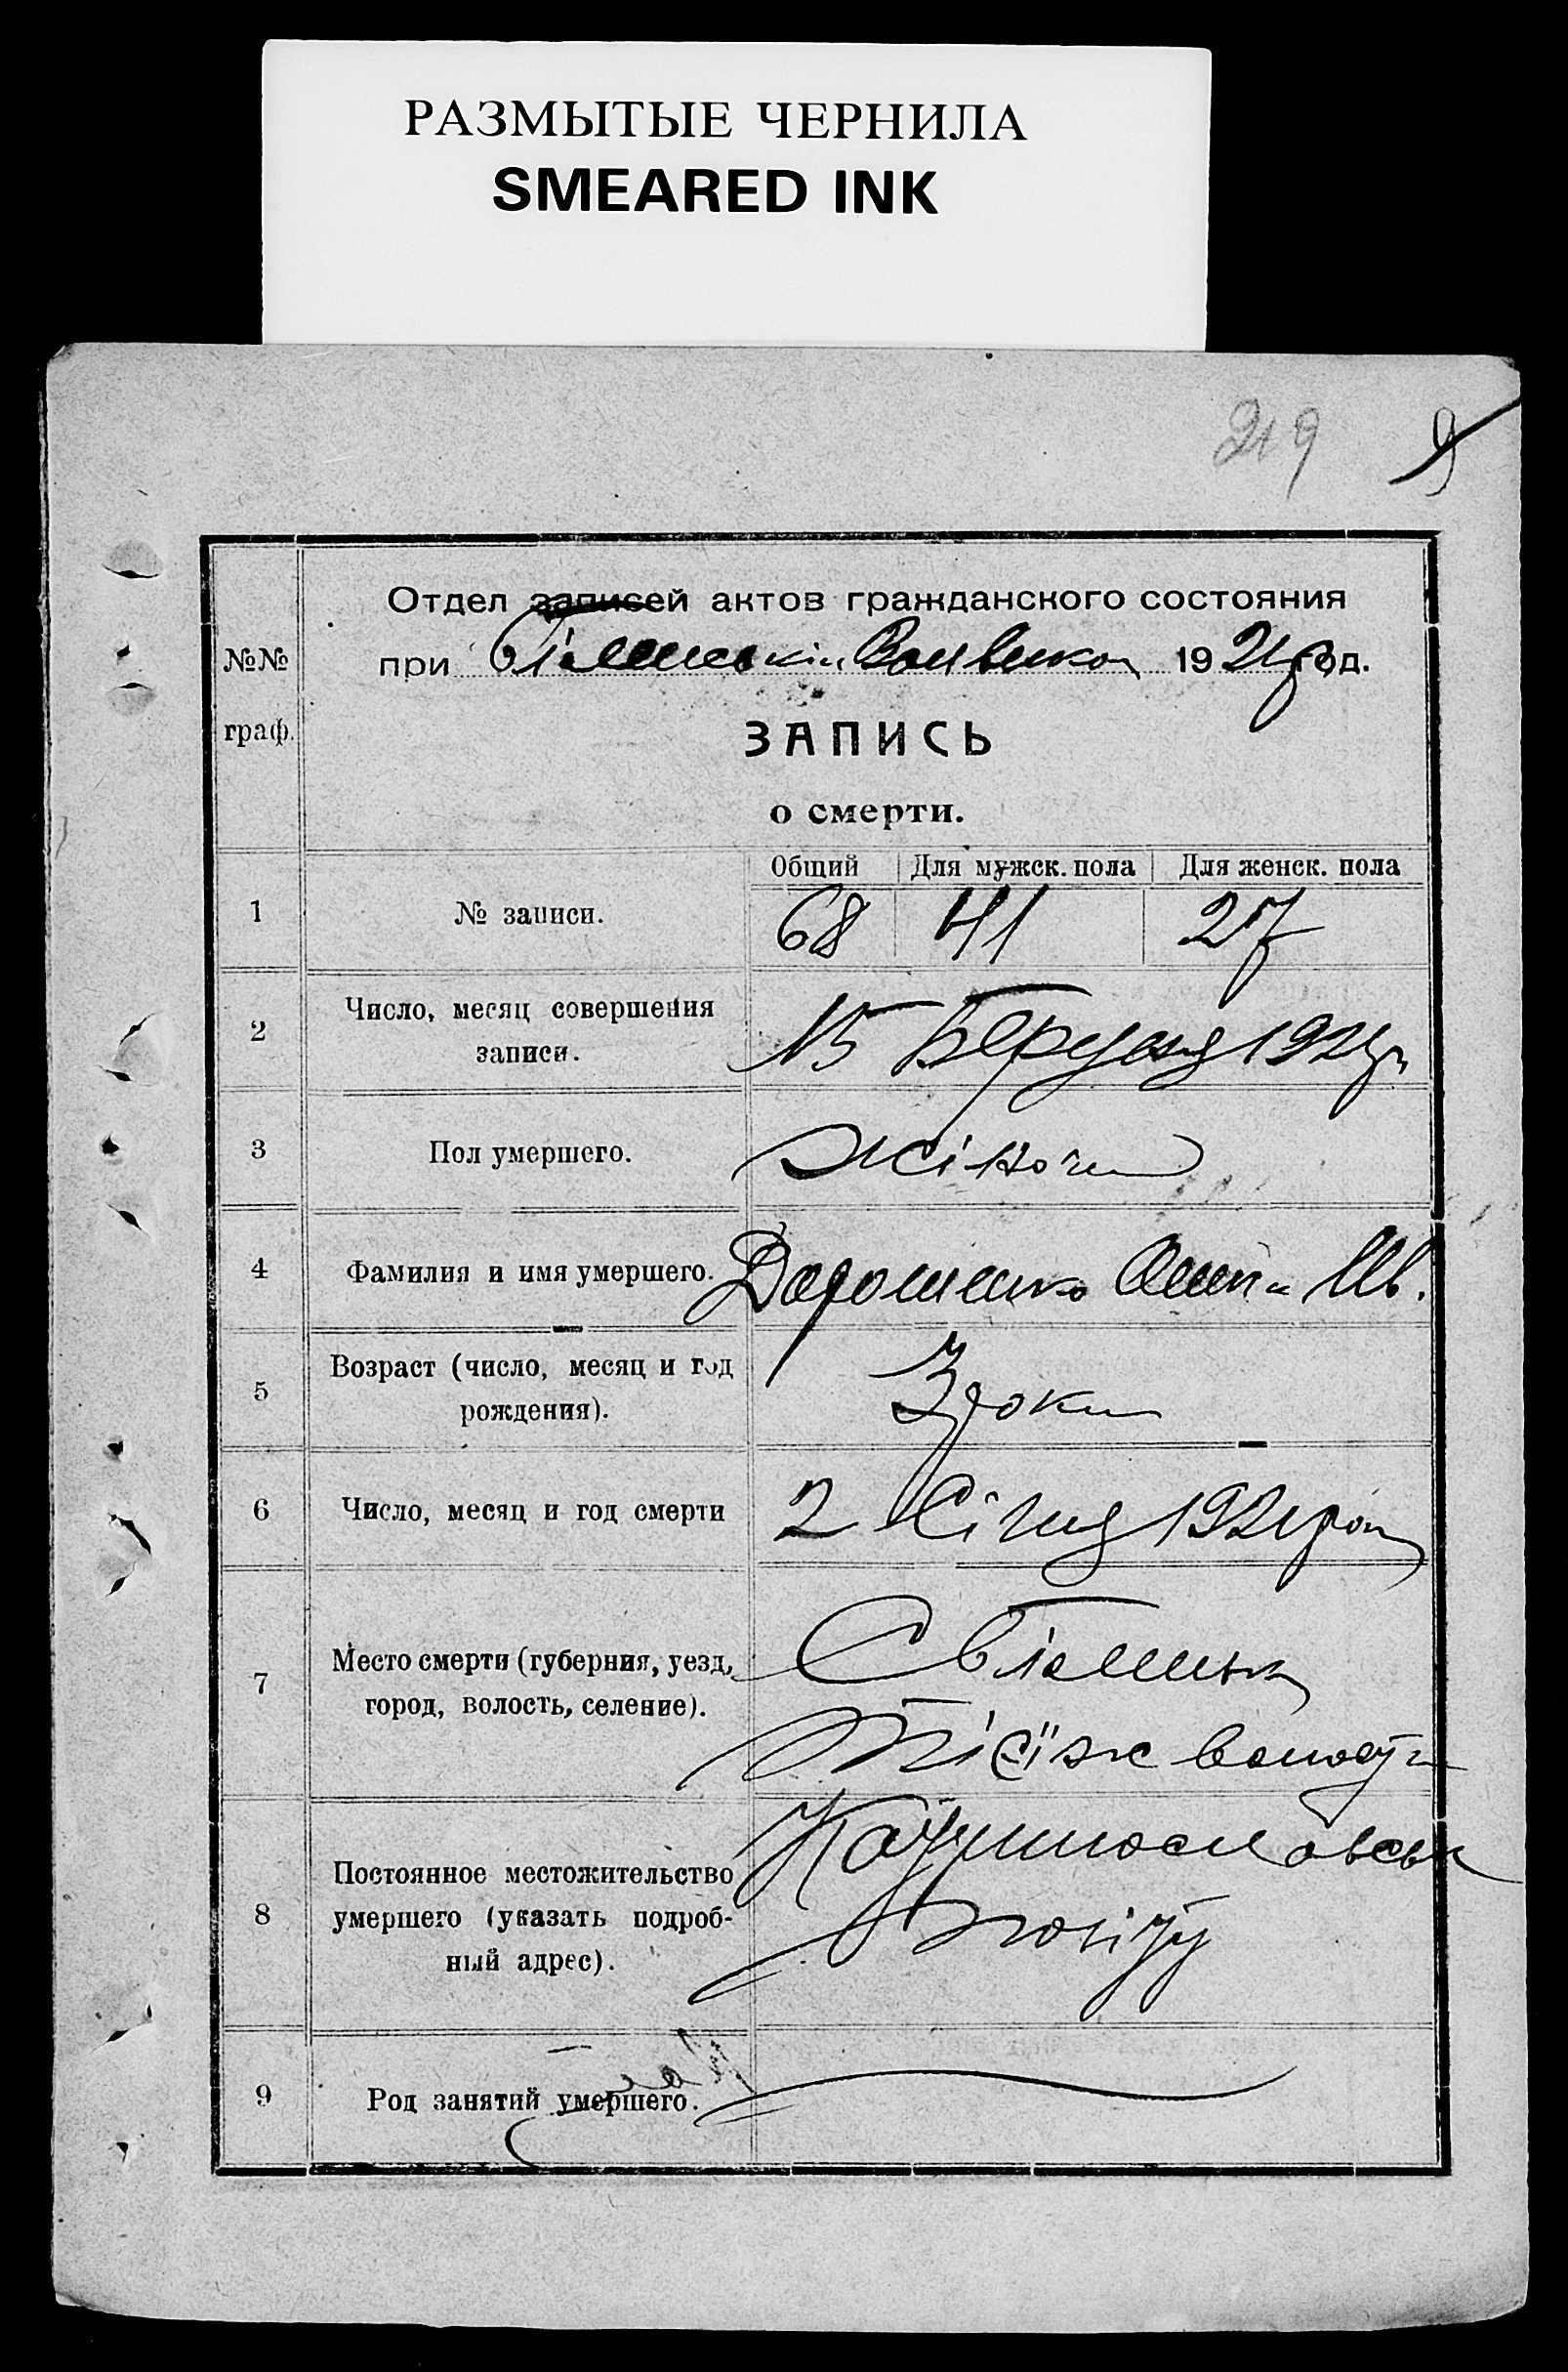 РАЗМЫТЫЕ ЧЕРНИЛА
SMEARED INK
219 9
Отдел записей актов гражданского состояния
№№
при 1921 год.
граф.
ЗАПИСЬ
о смерти.
Общий Для мужск. пола Для женск. пола
1 № записи. 68 41 27
2 Число, месяц совершения
записи.
15 Березня 1921 р
3 Пол умершего. жіноча
4 Фамилия и имя умершего. Дорошенко Ів.
5 Возраст (число, месяц и год
рождения).
3 роки
6 Число, месяц и год смерти 2 Січня 1921 рок
7 Место смерти (губерния, уезд,
город, волость, селение).
С
8 Постоянное местожительство
умершего (указать подроб-
ный адрес).
повіту
9 Род занятий умершего.